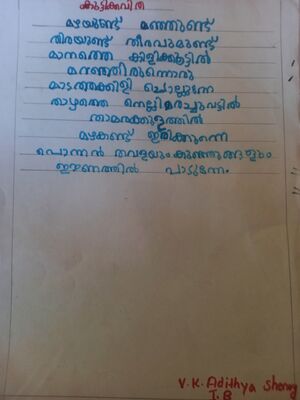 കുട്ടിക്കവിത
മഴയുണ്ട് മഞ്ഞുണ്ട്
തിരയുണ്ട് തീരവുമുണ്ട്
മാനത്തെ കിളിക്കൂട്ടിൽ
മഞ്ഞതിൽന്നൊരു
മാടത്തക്കിളി ചൊല്ലുന്നേ
താഴത്തെ നെല്ലിമരച്ചുവട്ടിൽ
താമരക്കുളത്തിൽ
മഴകണ്ട് ഇരിക്കുന്നെ
പൊന്നൻ തവളയും കുഞ്ഞുങ്ങളും
ഈണത്തിൽ പാടുന്നേ.
V.K. Adithya Shenoy
I.B